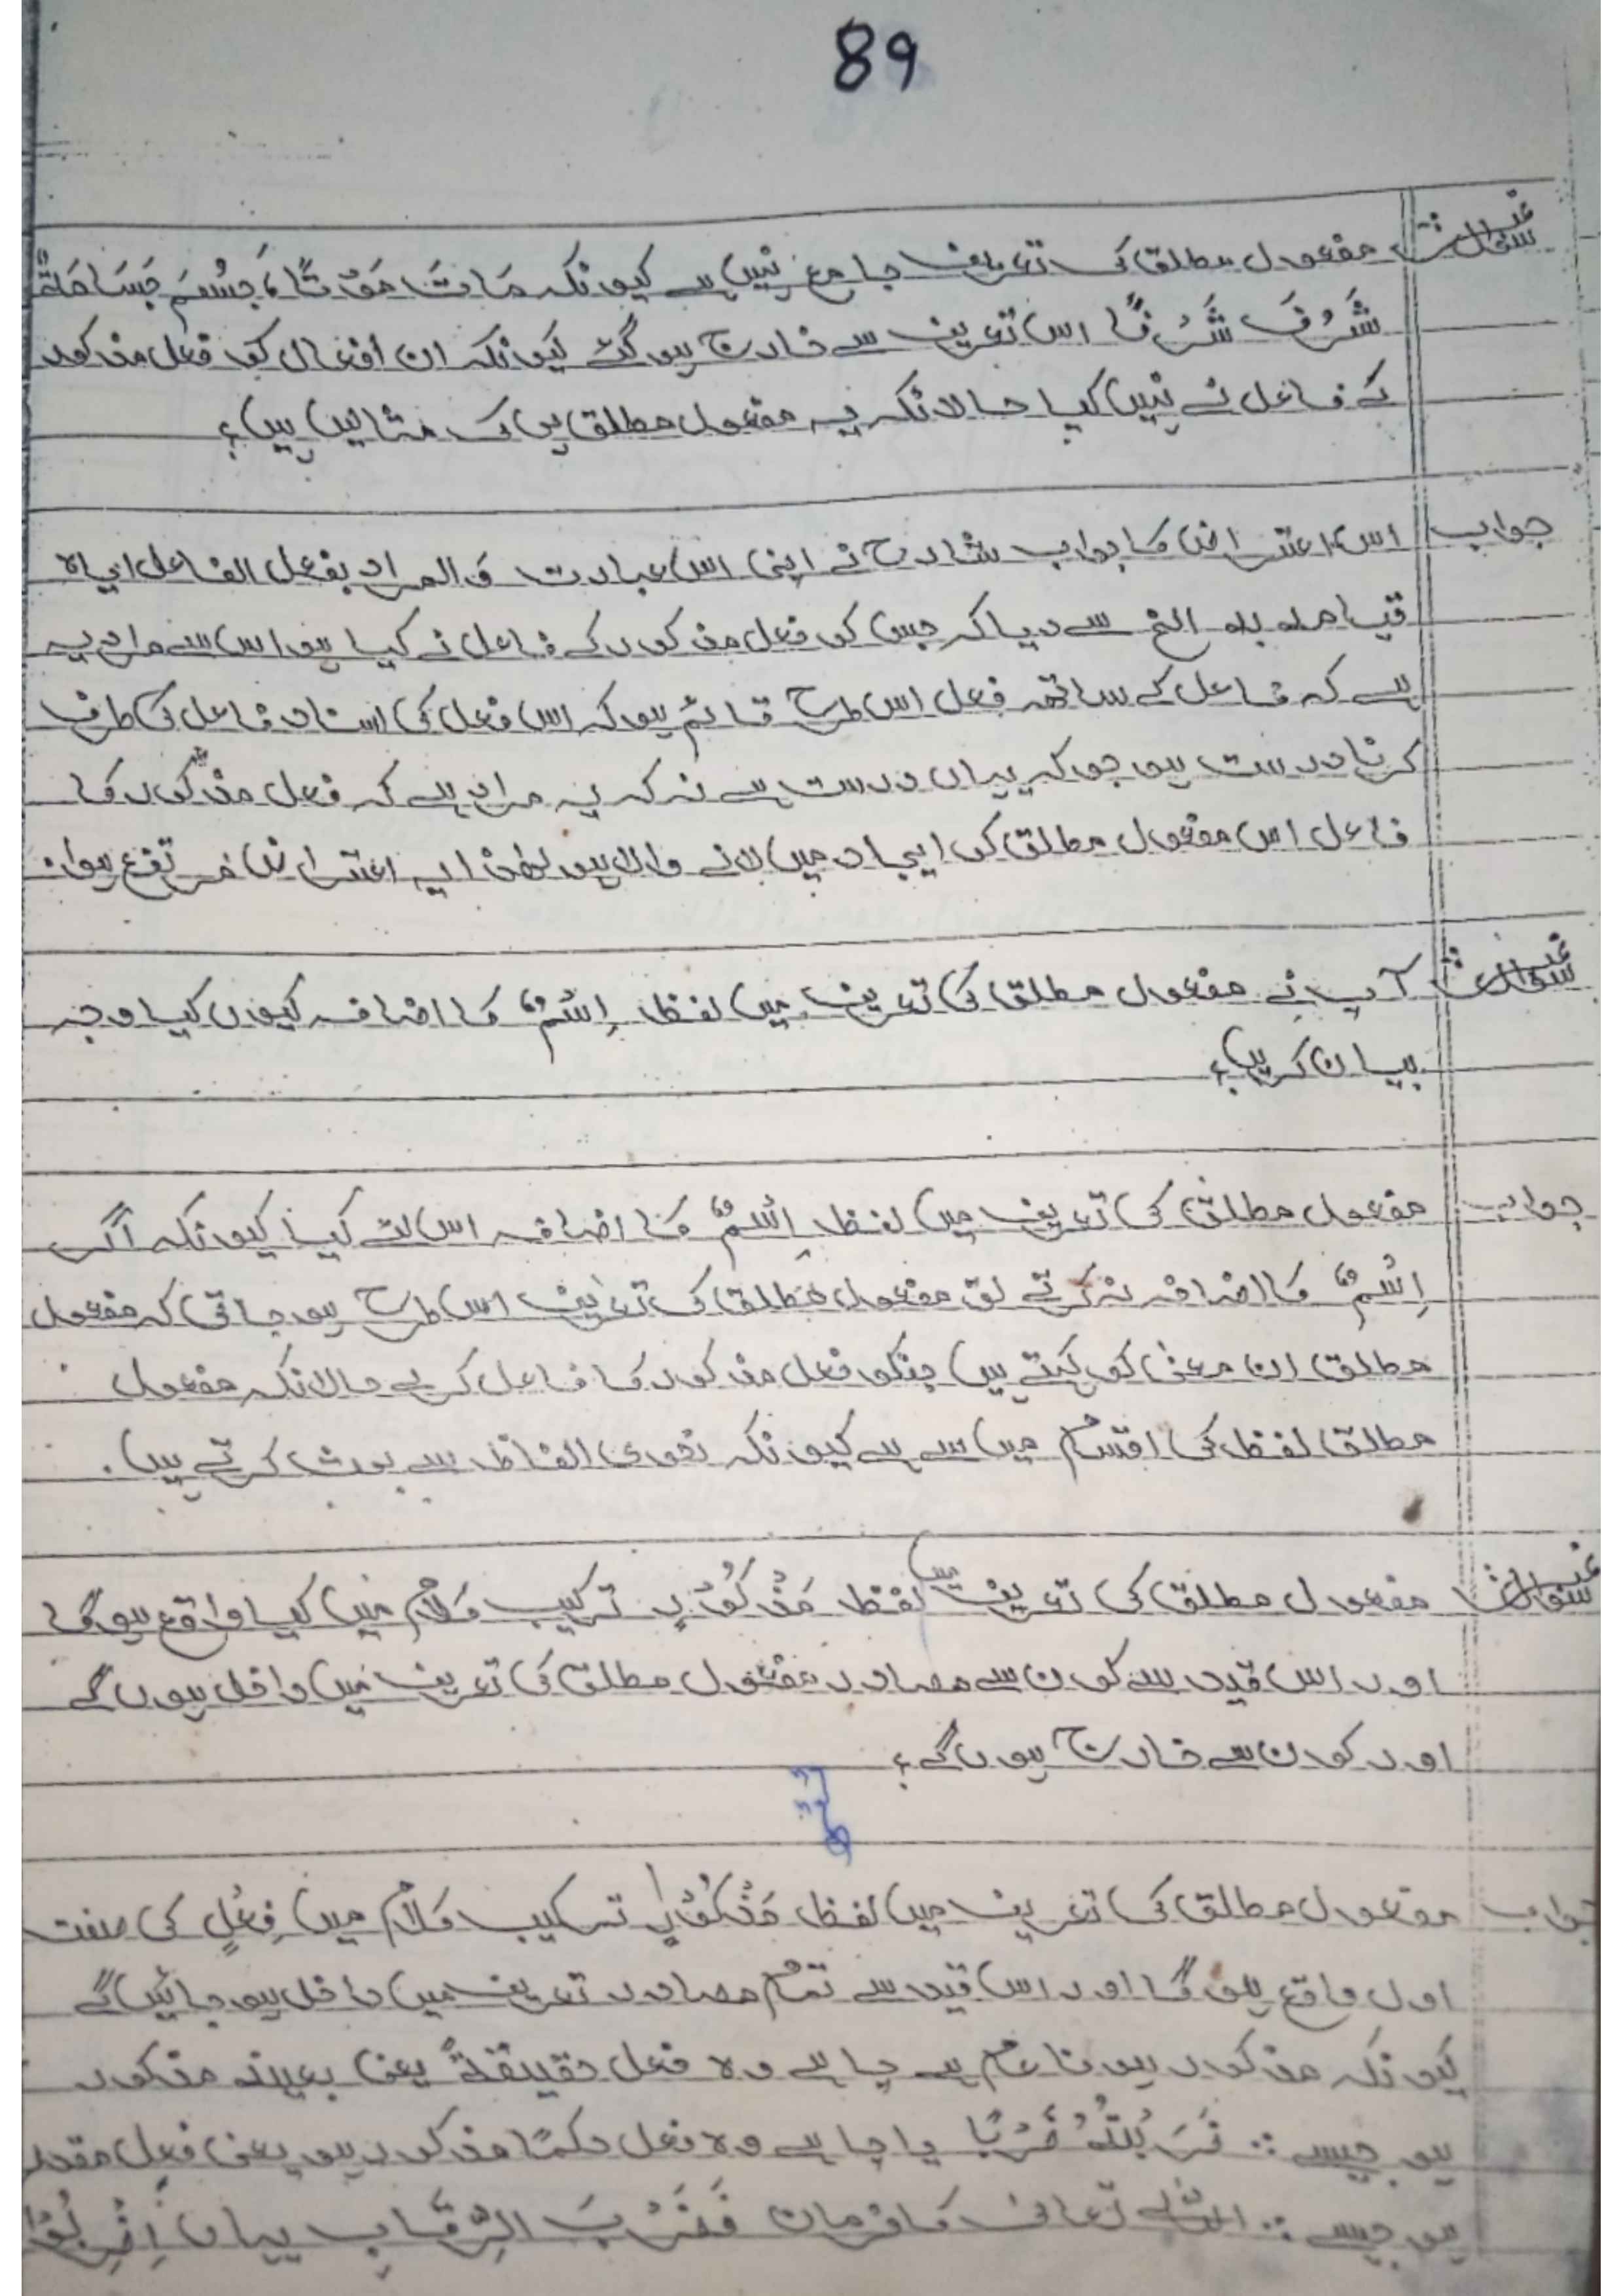 89
سوال مفعول مطلق کی تعریف جامع نہیں ہے کیونکہ مَاتَ مَوْتًا، جَسُمَ جَسَامَةً
شَرُفَ شَرَفًا اس تعریف سے خارج ہو گئے کیونکہ ان افعال کو فعل مذکور
کے فاعل نے نہیں کیا حالانکہ یہ مفعول مطلق ہی کی مثالیں ہیں؟
جواب اس اعتراض کا جواب شارح نے اپنی اس عبارت و المراد بفعل الفاعل ایاہ
قیامہ بہ الخ سے دیا کہ جس کو فعل مذکور کے فاعل نے کیا ہو اس سے مراد یہ
ہے کہ فاعل کے ساتھ فعل اس طرح قائم ہو کہ اس فعل کی اسناد فاعل کی طرف
کرنا درست ہو جو کہ یہاں درست ہے نہ کہ یہ مراد ہے کہ فعل مذکور کا
فاعل اس مفعول مطلق کو ایجاد میں لانے والا ہو لہٰذا یہ اعتراض مرتفع ہوا۔
سوال آپ نے مفعول مطلق کی تعریف میں لفظ اِسْمُ کا اضافہ کیوں کیا وجہ
بیان کریں؟
جواب مفعول مطلق کی تعریف میں لفظ اِسْمُ کا اضافہ اس لئے کیا کیونکہ اگر
اِسْمُ کا اضافہ نہ کرتے تو مفعول مطلق کی تعریف اس طرح ہو جاتی کہ مفعول
مطلق ان معنیٰ کو کہتے ہیں جنکو فعل مذکور کا فاعل کرے حالانکہ مفعول
مطلق لفظ کی اقسام میں سے ہے کیونکہ نحوی الفاظ سے بحث کرتے ہیں۔
سوال مفعول مطلق کی تعریف میں لفظ مَذْکُوْرٍ ترکیب کلام میں کیا واقع ہو گا
اور اس قید سے کون سے مصادر مفعول مطلق کی تعریف میں داخل ہوں گے
اور کون سے خارج ہوں گے؟
جواب مفعول مطلق کی تعریف میں لفظ مَذْکُوْرٍ ترکیب کلام میں فِعْلٍ کی صفت
اول واقع ہو گا اور اس قید سے تمام مصادر تعریف میں داخل ہو جائیں گے
کیونکہ مذکور ہونا عام ہے چاہے وہ فعل حقیقۃً یعنی بعینہ مذکور
ہو جیسے :: ضَرَبْتُہُ ضَرْبًا یا چاہے وہ فعل حکمًا مذکور ہو یعنی فعل مقدر
ہو جیسے :: اللہ تعالیٰ کا فرمان فَضَرْبَ الرِّقَابِ یہاں اِضْرِبُوْا